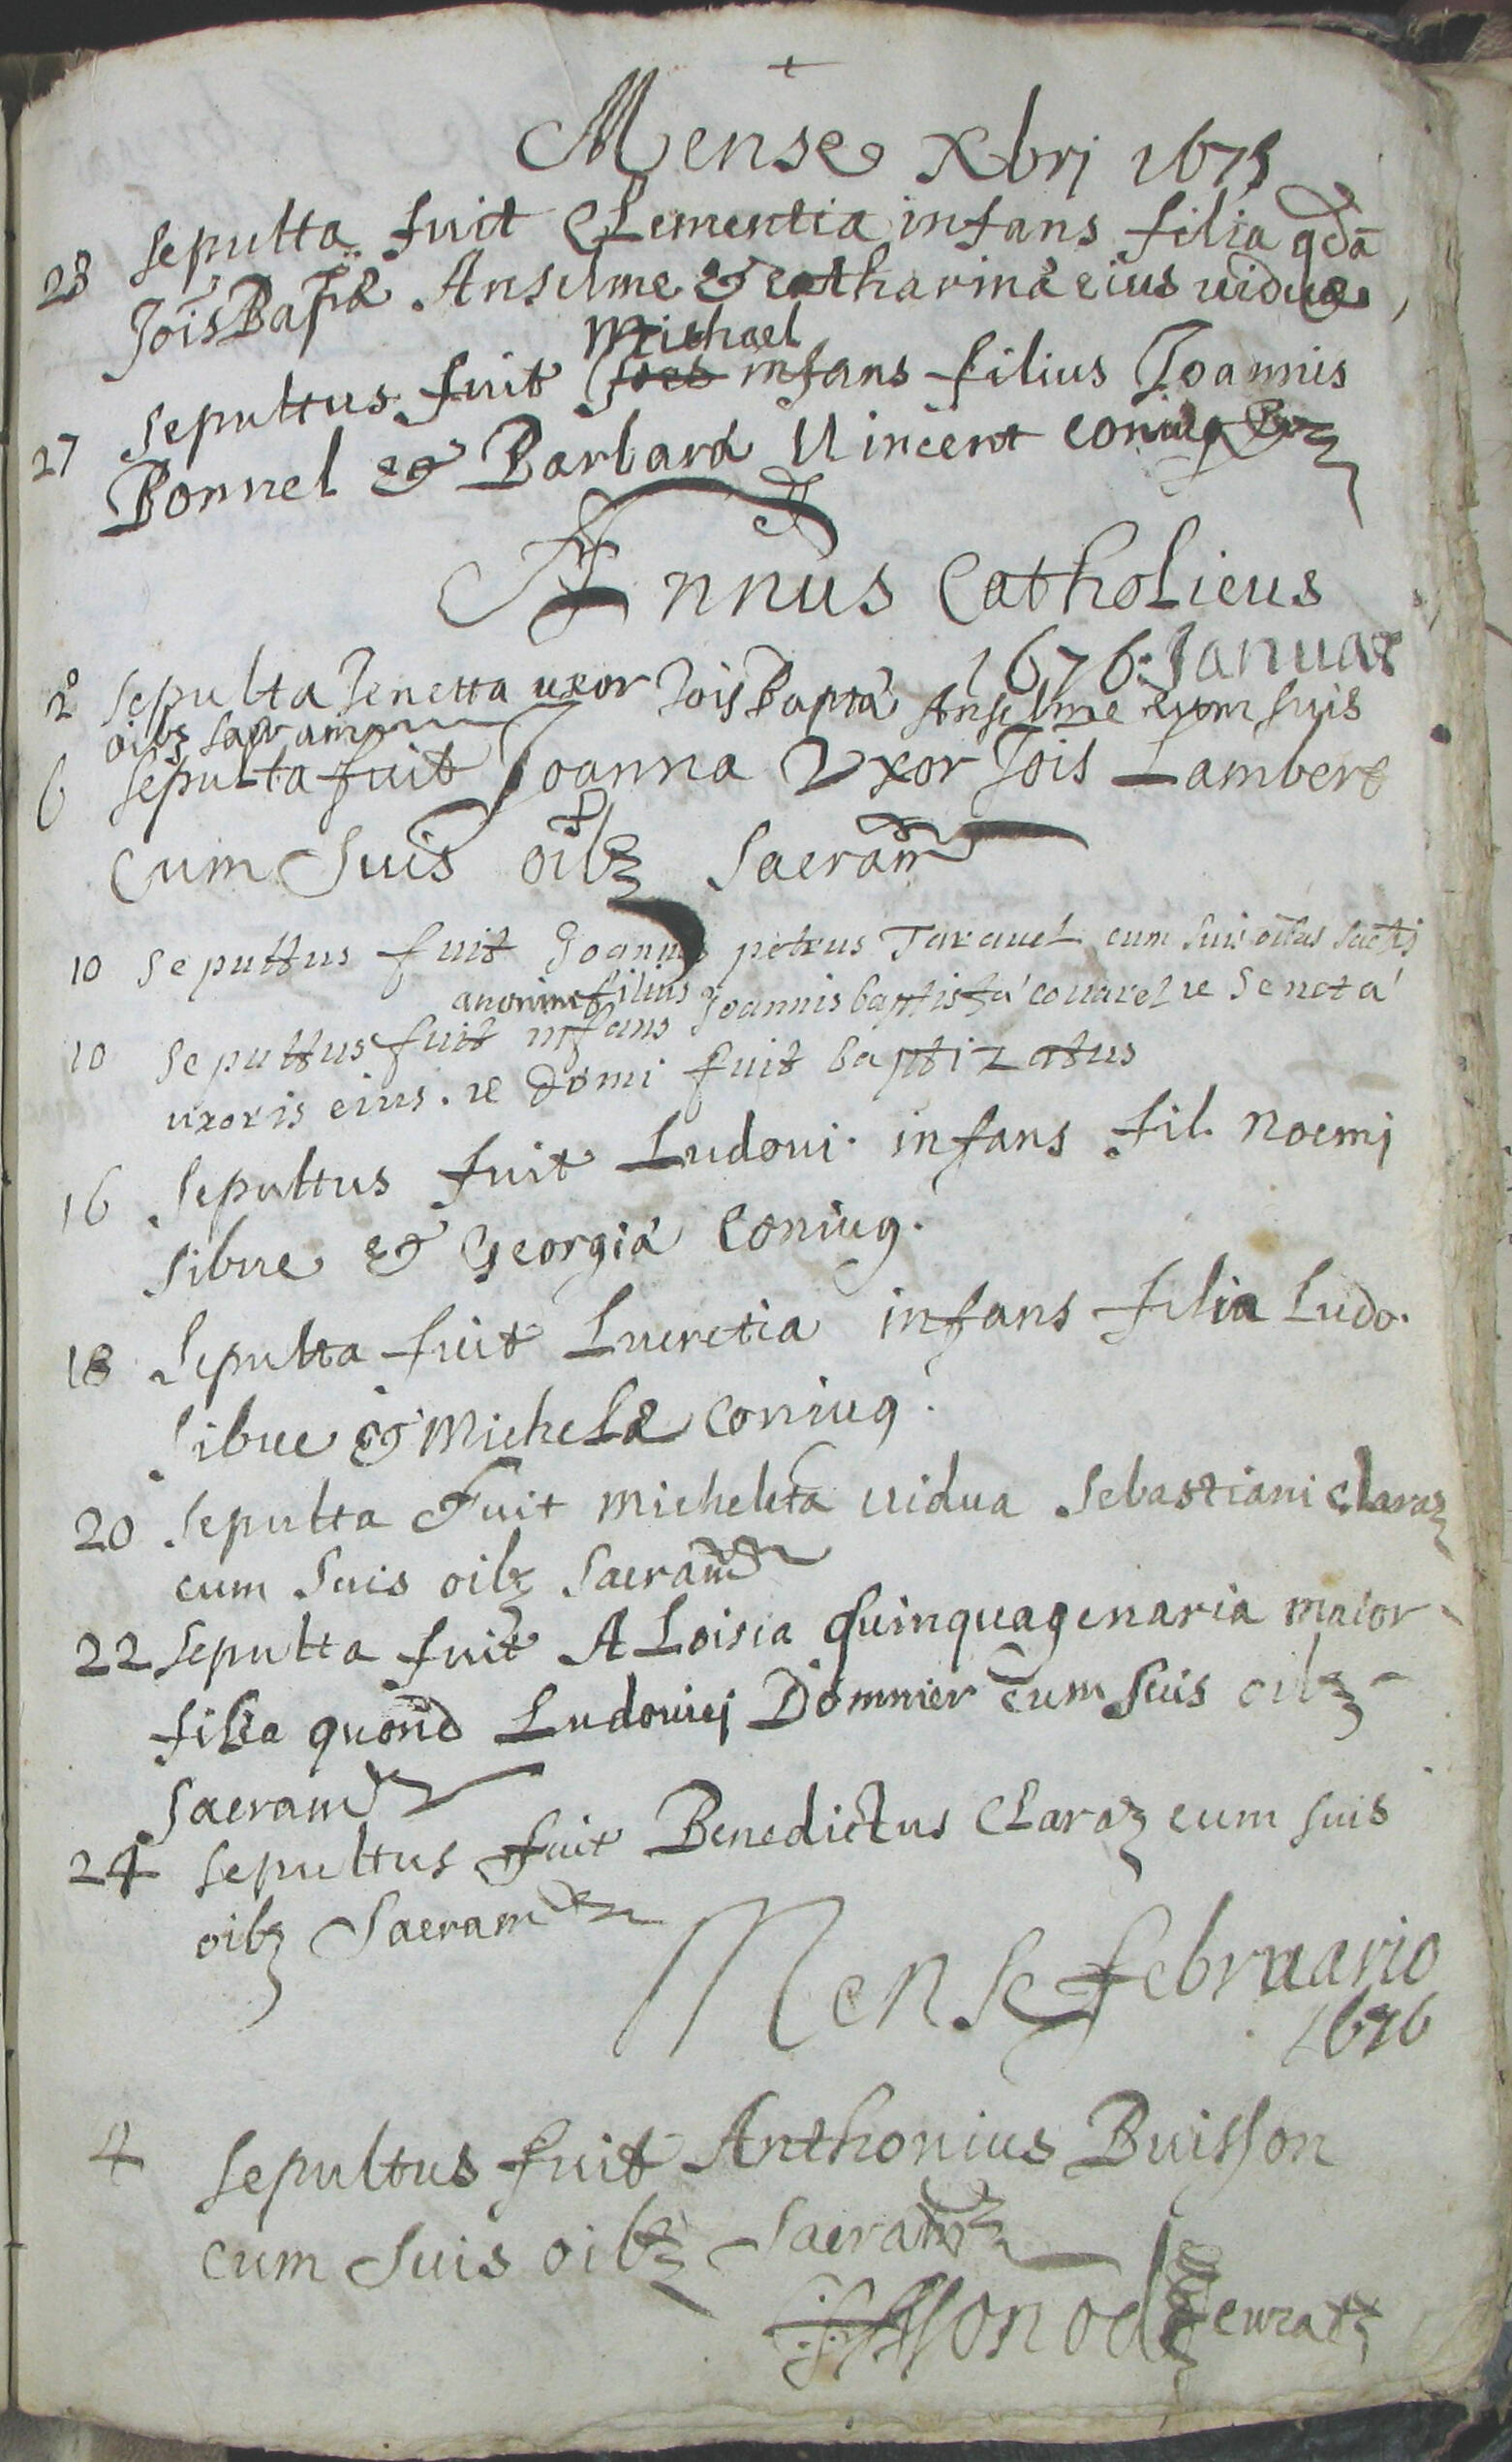 Mense Xbrj 1675
28 sepulta fuit Clementia infans filia qdā
Jois Baptæ Anselme & catharinæ eius viduæ,
Michael
27 sepultus fuit infans filius Joannis
Bonnel & Barbaræ Vincent coniug
Annus Catholicus
1676. Januar
2° sepulta Jenetta uxor Jois Baptæ Anselme cum suis
oibz sacram
6 sepulta fuit Joanna Vxor Jois Lambert
Cum Suis oibz Sacram
10 sepultus fuit Joannes petrus Taravel cum suis oibus sactis
anonime filius
10 sepultus fuit infans Joannis baptistæ couarel & Jenetæ
uxoris eius. & domi fuit baptizatus
16 Sepultus fuit Ludoui. infans fil. Noemj
Sibue & Georgiæ Coniug.
18 Sepulta fuit Lucretia infans filia Ludo.
Sibue & Michelæ coniug.
20 sepulta Fuit micheleta vidua Sebastiani Claraz
cum Suis oibz Sacram
22 sepulta fuit ALoisia quinquagenaria maior
filia quond Ludovicj Domnier cum suis oibz
Sacram
24 sepultus fuit Benedictus Claraz cum suis
oibz Sacram
Mense februario
1676
4 sepultus fuit Anthonius Buisson
cum Suis oibz Sacram
curatz